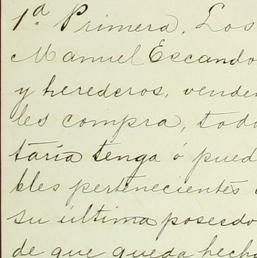 1ª Primera. Los
Manuel Escando
y herederos, vende
les compra, tod
taría tenga ó pued
bles pertenecientes
su última poseedo
de que queda hecha